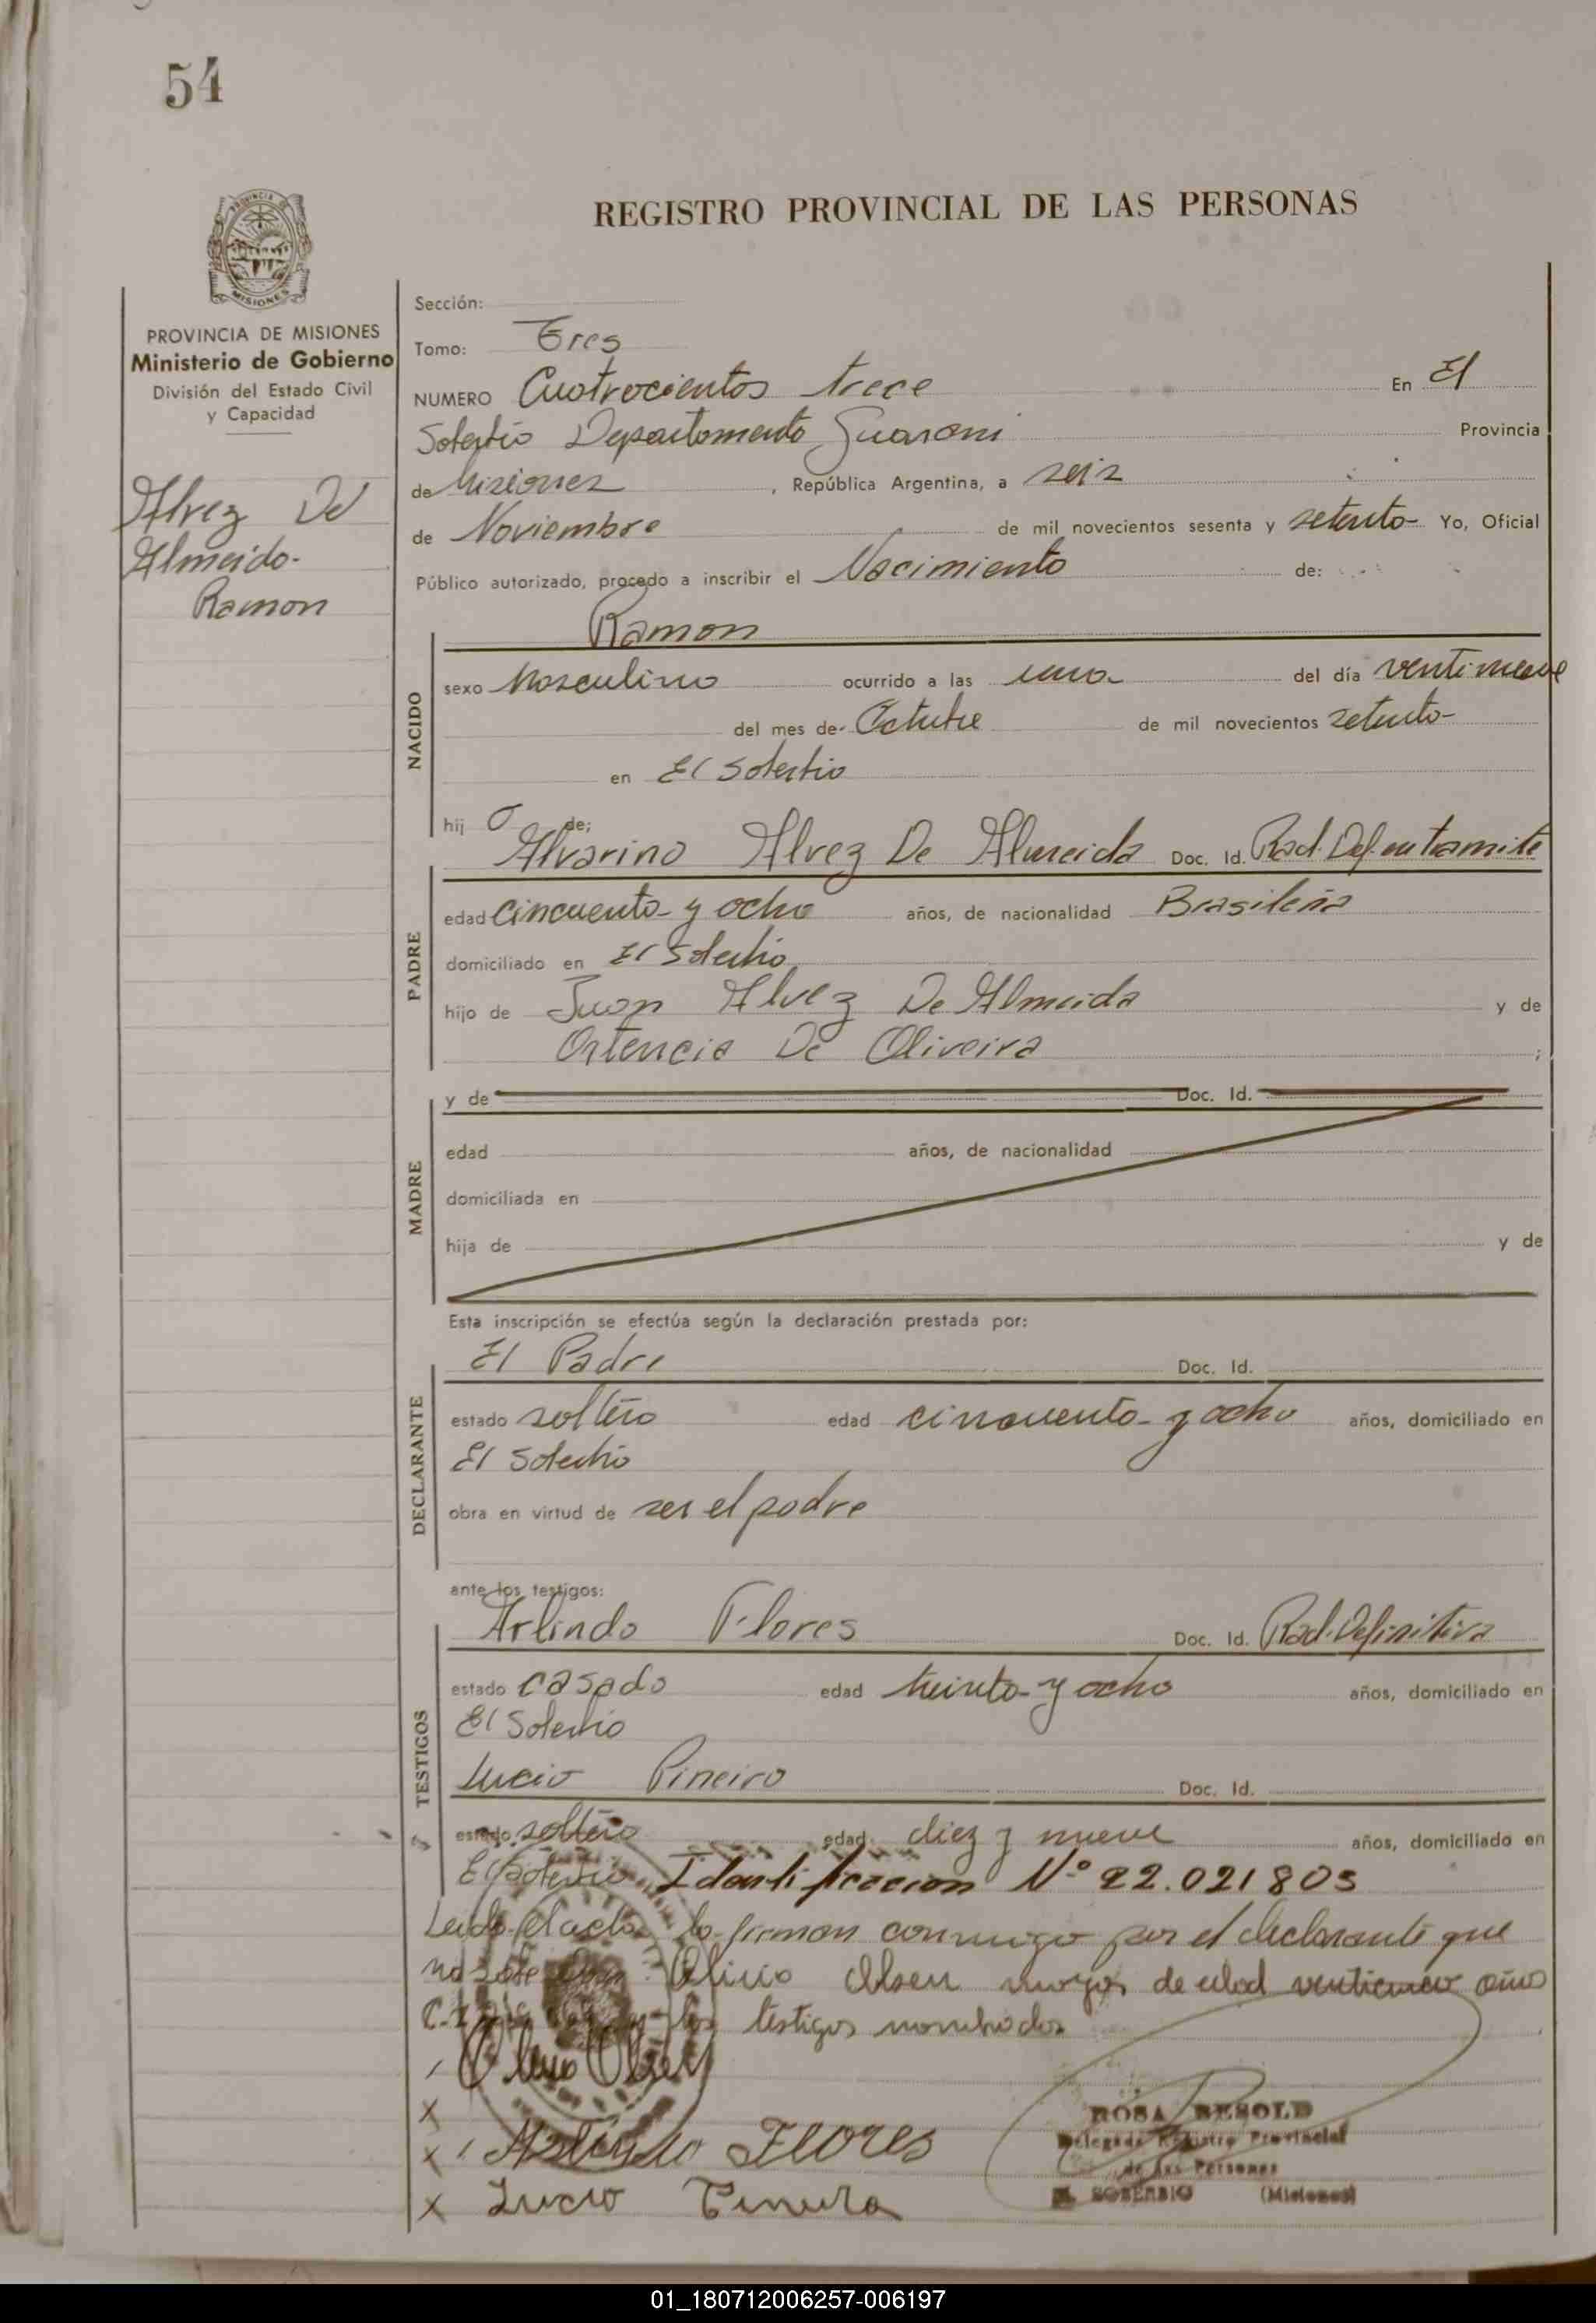 54
REGISTRO PROVINCIAL DE LAS PERSONAS
PROVINCIA DE MISIONES
MISIONES
PROVINCIA DE MISIONES
Ministerio de Gobierno
División del Estado Civil
y Capacidad
Alvez De
Almeida
Ramon
Sección:
Tomo: Tres
NUMERO Cuatrocientos trece En El
Soberbio Departamento Guarani Provincia
de Misiones , República Argentina, a seis
de Noviembre de mil novecientos sesenta y setenta Yo, Oficial
Público autorizado, procedo a inscribir el Nacimiento de:
Ramon
NACIDO
sexo Masculino ocurrido a las una del día ventinueve
del mes de Octubre de mil novecientos setenta
en El Soberbio
hij o de;
Alvarino Alvez De Almeida Doc. Id. Rad. Def. en tramite
PADRE
edad cincuenta y ocho años, de nacionalidad Brasileña
domiciliado en El Soberbio
hijo de Juan Alvez De Almeida y de
Ortencia De Oliveira ;
MADRE
y de Doc. Id.
edad años, de nacionalidad
domiciliada en
hija de y de
Esta inscripción se efectúa según la declaración prestada por:
DECLARANTE
El Padre Doc. Id.
estado soltero edad cincuenta y ocho años, domiciliado en
El Soberbio
obra en virtud de ser el padre
ante los testigos:
TESTIGOS
Arlindo Flores Doc. Id. Rad. Definitiva
estado casado edad treinta y ocho años, domiciliado en
El Soberbio
Lucio Pineiro Doc. Id.
estado soltero edad diez y nueve años, domiciliado en
El Soberbio Identificacion Nº 22.021805
Leida el acta la firman conmigo por el declarante que
no sabe Olivio Olsen mayor de edad venticinco años
C.I. los testigos nombrados
Olivio Olsen
X
X Arlindo Flores
X Lucio
ROSA BESOLD
Delegada Registro Provincial
de las Personas
EL SOBERBIO (Misiones)
01_180712006257-006197